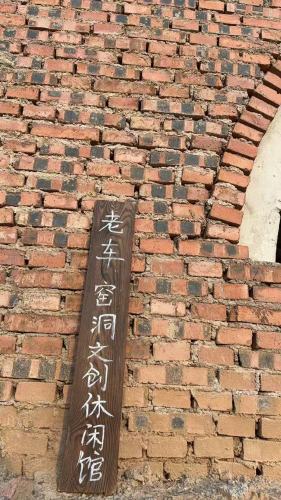 老车 窑洞文创休闲馆